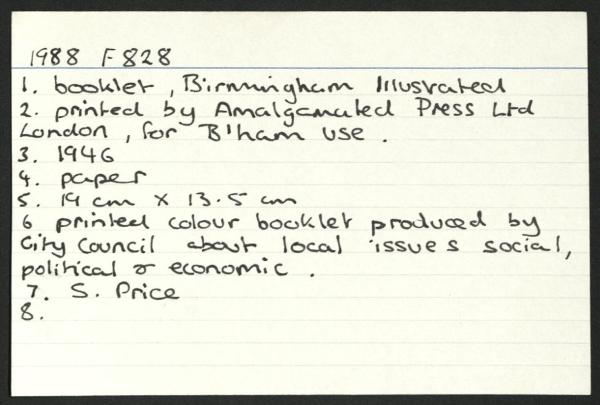 1988 F828
1. booklet, Birmingham Illustrated
2. printed by Amalgamated Press Ltd
London, for B'ham use.
3. 1946
4. paper
5. 19 cm x 13.5 cm
6 printed colour booklet produced by
City Council about local issues social,
political & economic.
7. S. Price
8.